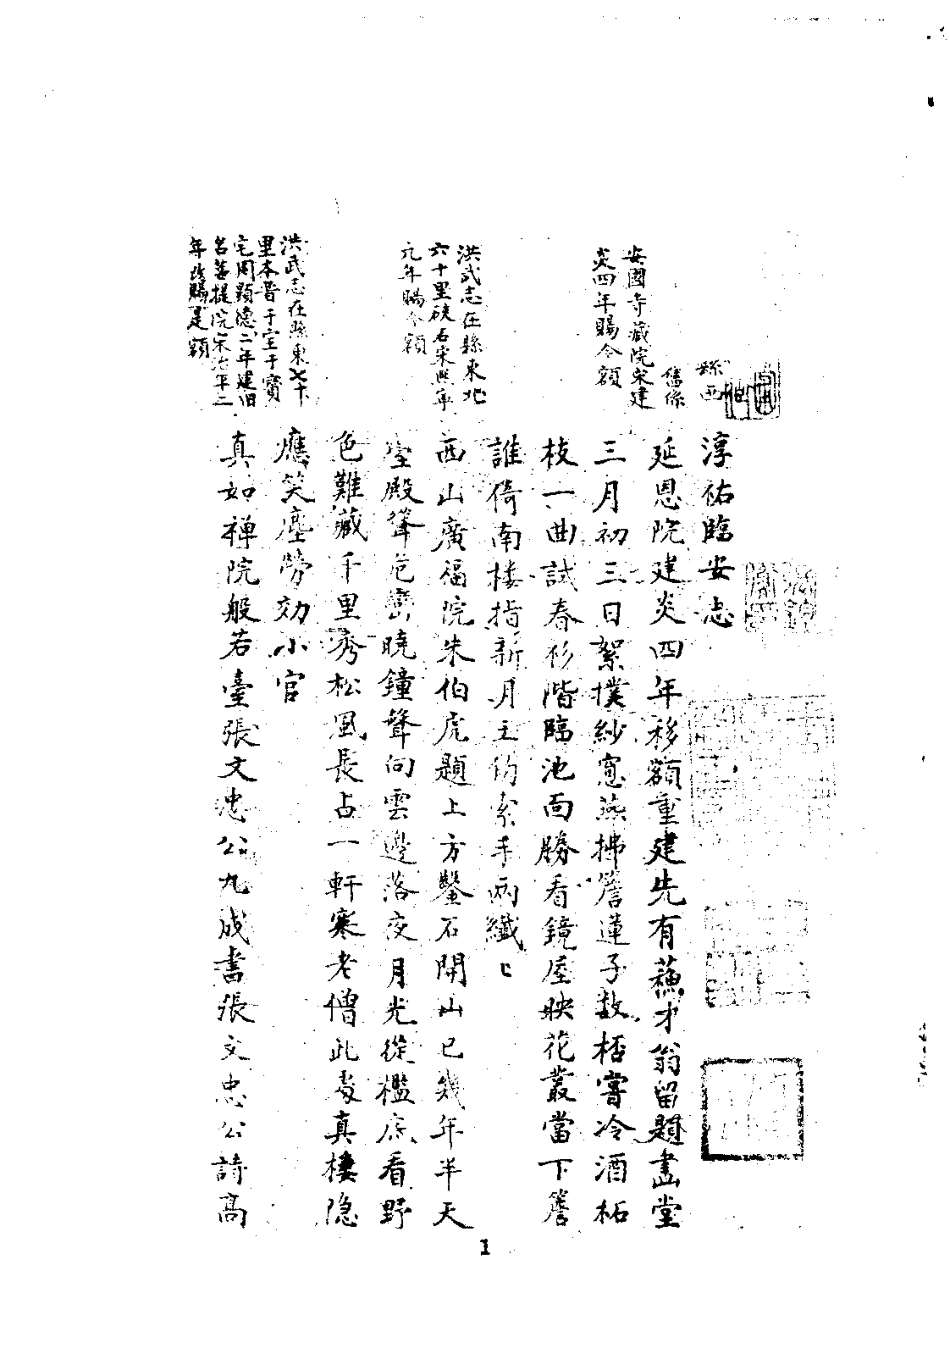 淳祐臨安志
延恩院建炎四年移額重建先有蘇才翁留題畵堂
三月初三日絮撲紗窓燕拂簷蓮子数桮嘗冷酒柘
枝一曲試春衫階臨池面勝看鏡屋映花叢當下簷
誰倚南樓指新月玉鈎索手兩纖〻
西山廣福院朱伯虎題上方鑿石開山已幾年半天
堂殿聳危巒曉鐘聲向雲邊落夜月光從檻底看野
色難藏千里秀松風長占一軒寒老僧此處真棲隐
應笑塵勞効小官
真如禅院般若臺張文忠公九成書張文忠公詩高
縣西
舊係
安國寺藏院宋建
炎四年賜今額
洪武志在縣東北
六十里硤石宋熈寧
元年賜今額
洪武志在縣東七十
里本晉干宝于寳
宅周顕德二年建旧
名菩提院宋治平二
年改賜是額
1